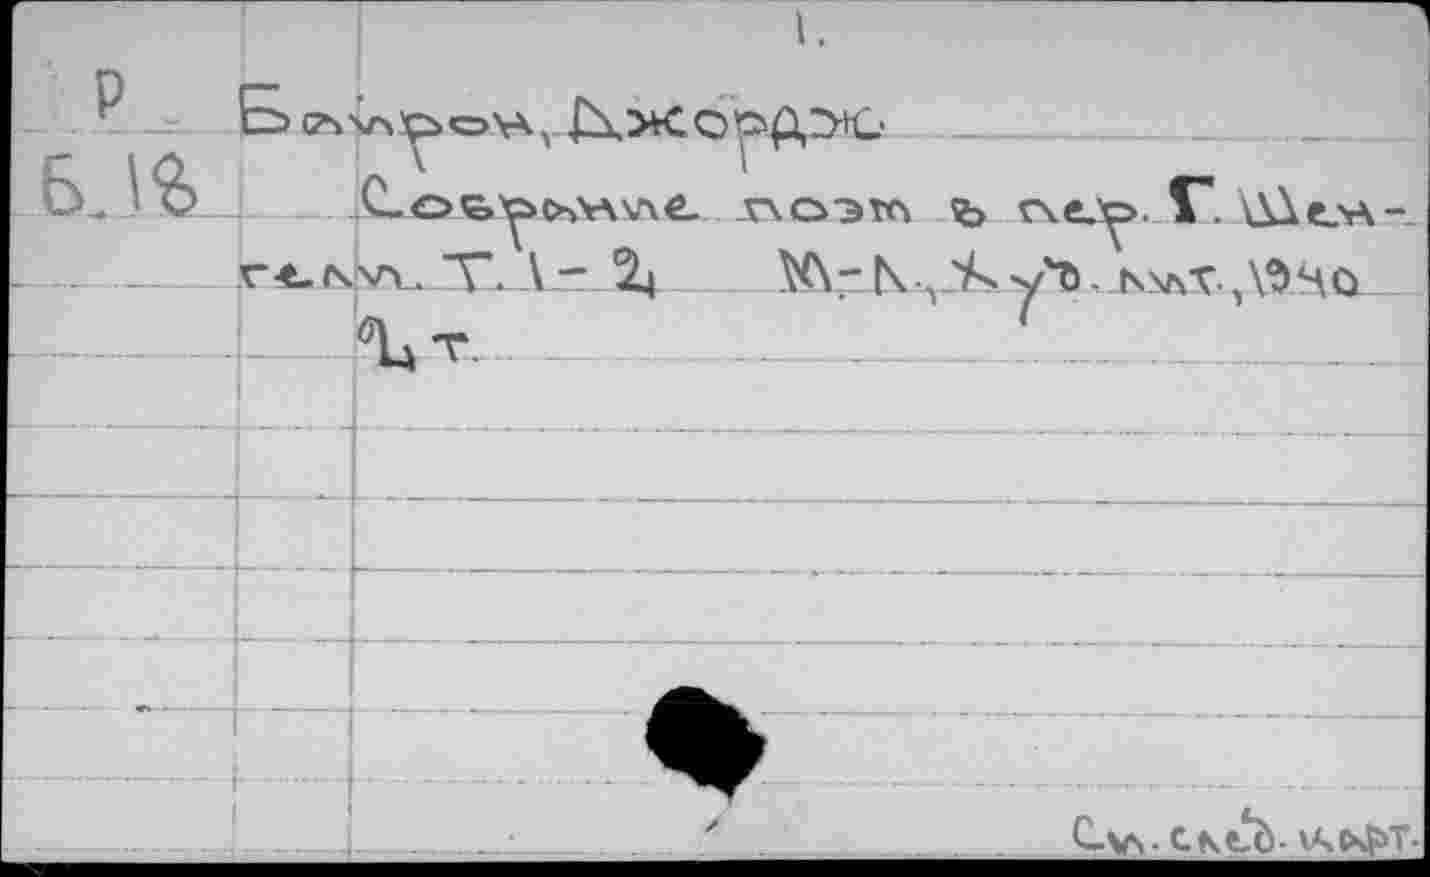 1.
Р
Байрон, Джордж
Б.18
Собрание поэм в пер. Г. Шен-
гели. Т. 1 - 2
М.-Л., Худ. лит., 1940
2 т.
См. след. карт.